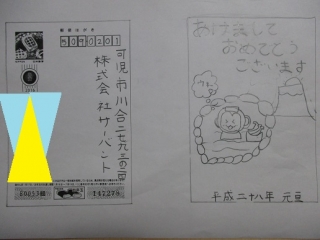 郵便はがき
5090201
可児市川合二七九三の
株式会社サーバント
147278
あけまして
おめでとう
ございます
平成二十八年 元旦